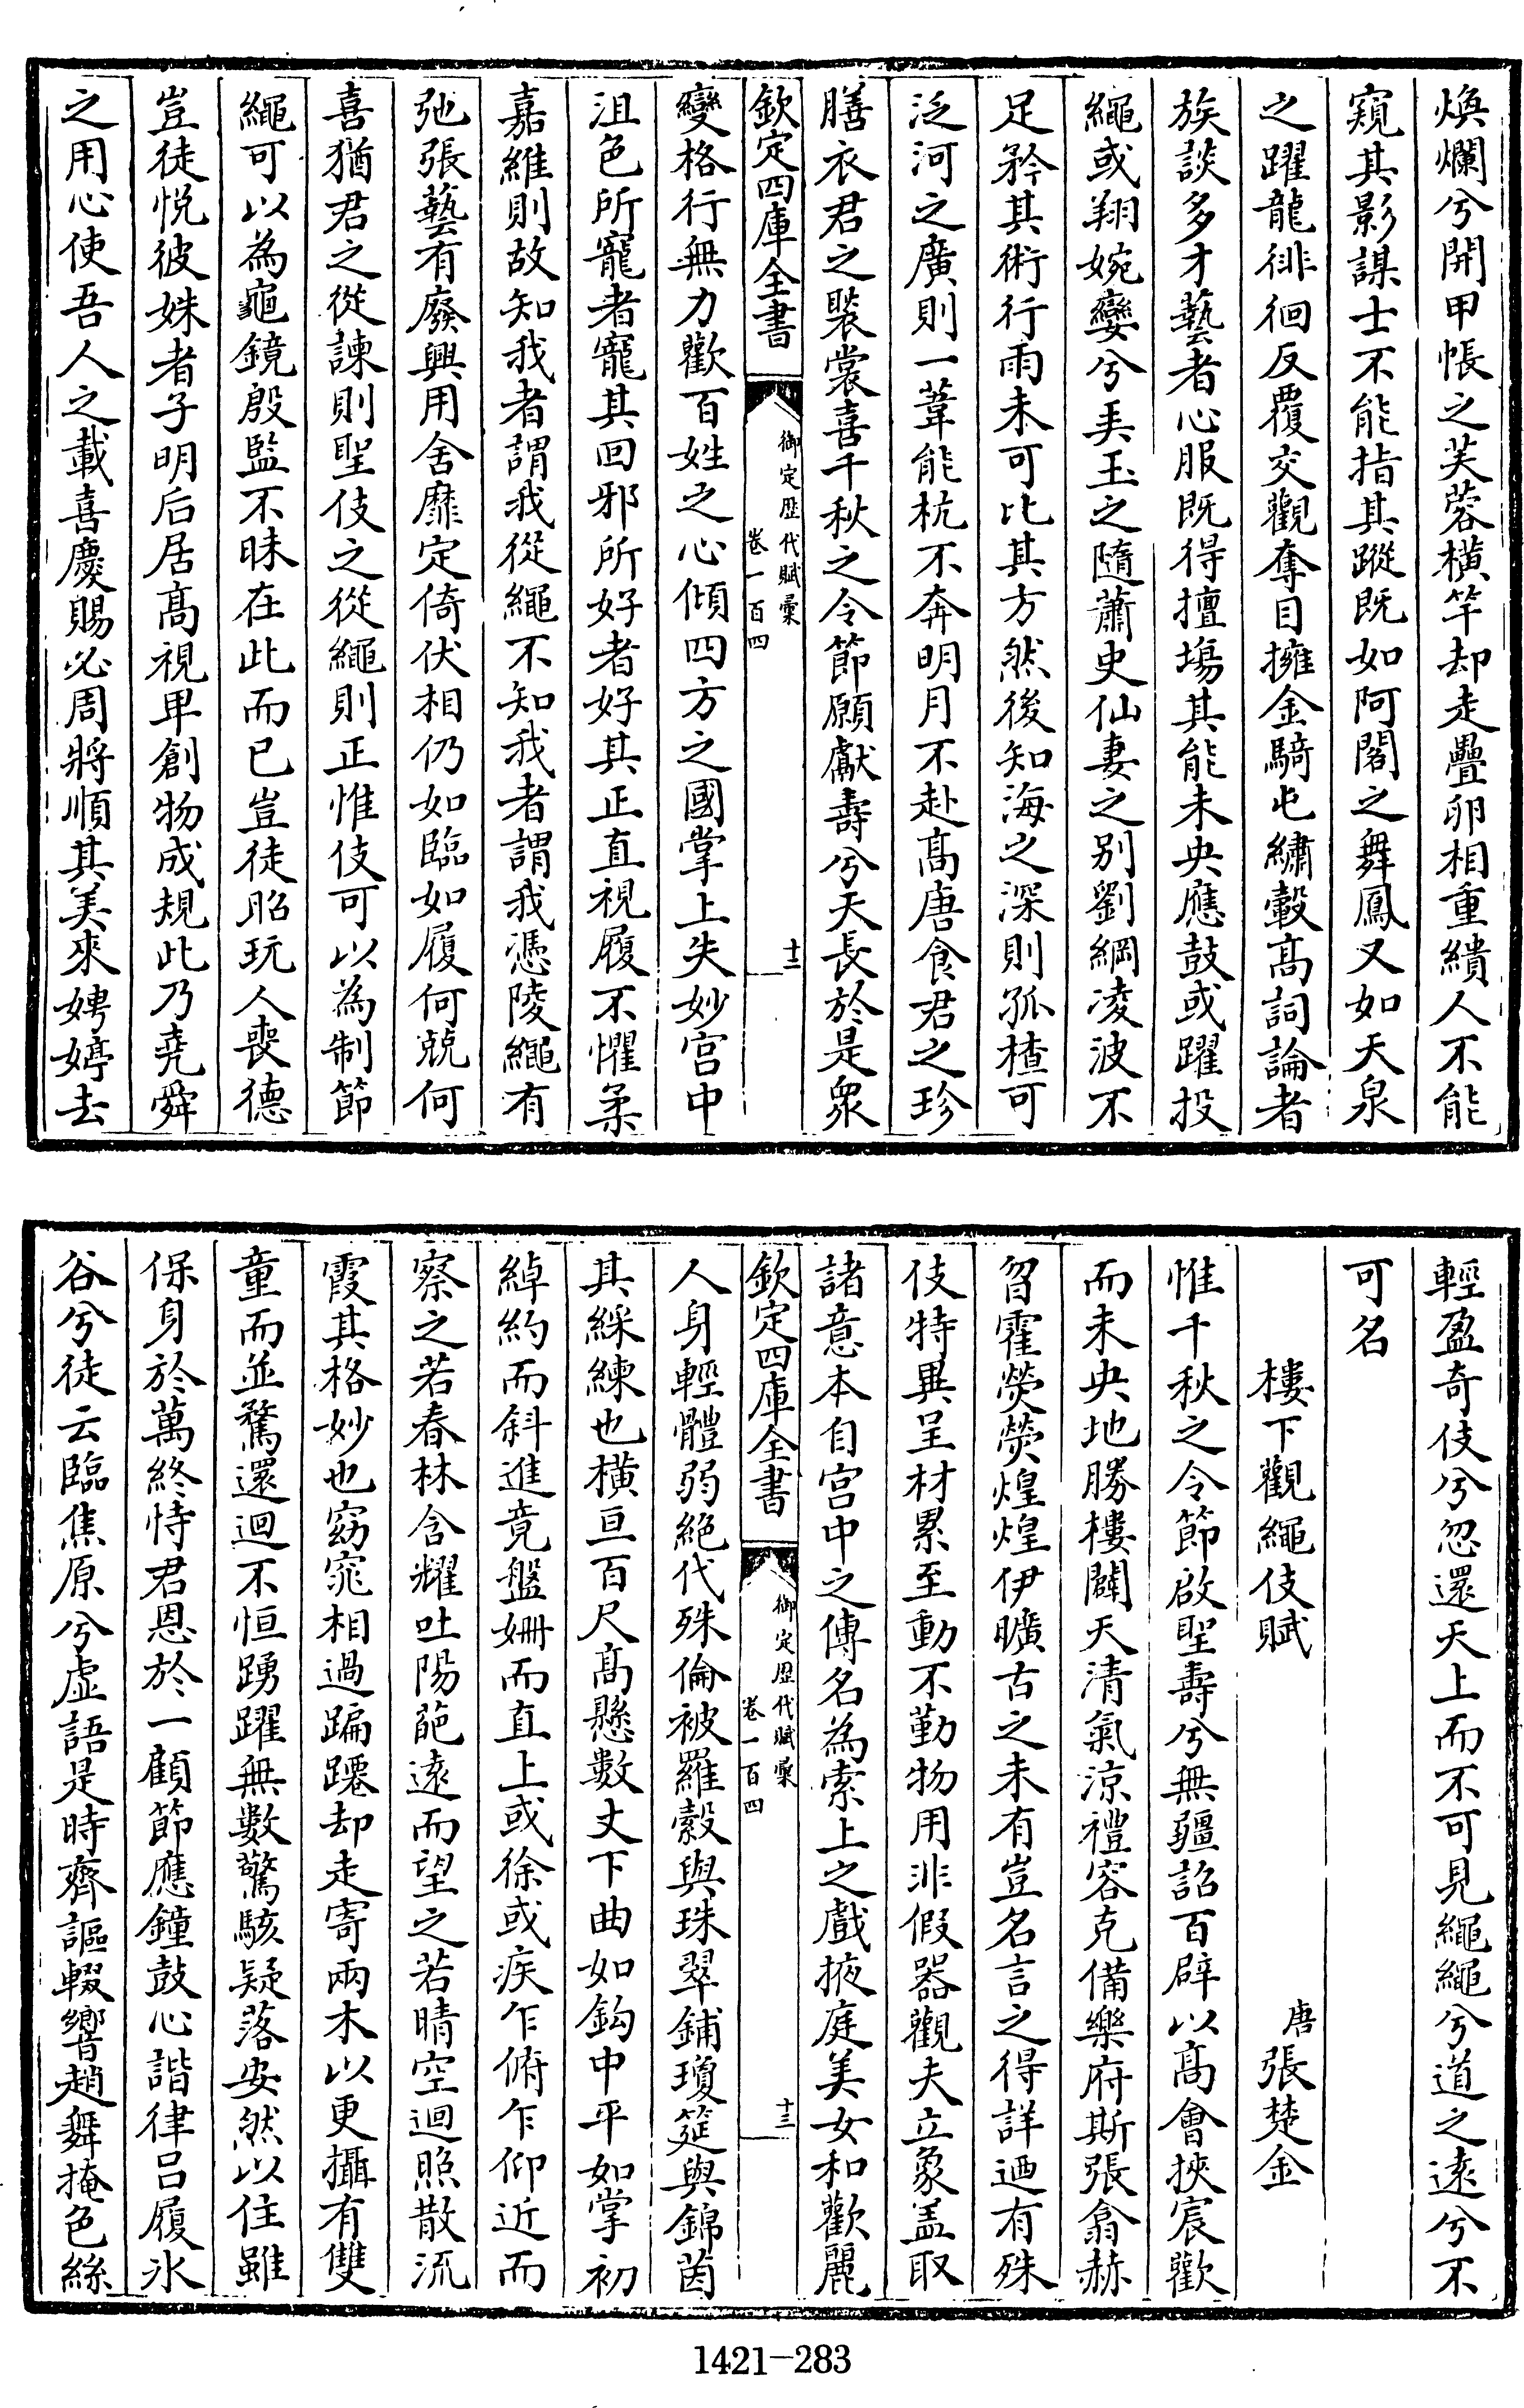 煥爛兮開甲帳之芙蓉橫竿却走疊卵相重繢人不能
窺其影謀士不能指其蹤既如阿閣之舞鳳又如天泉
之躍龍徘徊反覆交觀奪目擁金騎屯繡轂高詞論者
族談多才藝者心服既得擅塲其能未央應鼓或躍投
繩或翔婉孌兮美玉之隨蕭史仙妻之别劉綱凌波不
足矜其術行雨未可比其方然後知海之深則孤楂可
泛河之廣則一葦能杭不奔明月不赴髙唐食君之珍
膳衣君之褧裳喜千秋之令節願獻壽兮天長於是衆
欽定四庫全書
御定歴代賦彙
卷一百四
十二
變格行無力歡百姓之心傾四方之國掌上失妙宫中
沮色所寵者寵其回邪所好者好其正直視履不懼柔
嘉維則故知我者謂我從繩不知我者謂我憑陵繩有
弛張藝有廢興用舍靡定倚伏相仍如臨如履何兢何
喜猶君之從諫則聖伎之從繩則正惟伎可以為制節
繩可以為龜鏡殷監不昧在此而已豈徒昭玩人喪德
豈徒悅彼姝者子明后居髙視卑創物成規此乃堯舜
之用心使吾人之載喜慶賜必周將順其美來娉婷去
輕盈奇伎兮忽還天上而不可見繩繩兮道之遠兮不
可名
樓下觀繩伎賦
唐張楚金
惟千秋之令節啟聖壽兮無疆詔百辟以髙會挾宸歡
而未央地勝樓闢天清氣涼禮容克備樂府斯張翕赫
曶霍熒熒煌煌伊曠古之未有豈名言之得詳迺有殊
伎特異呈材累至動不勤物用非假器觀夫立象盖取
諸意本自宫中之傳名為索上之戲掖庭美女和歡麗
欽定四庫全書
御定歴代賦彙
卷一百四
十三
人身輕體弱絕代殊倫被羅縠與珠翠鋪瓊筵與錦茵
其綵練也橫亘百尺髙懸數丈下曲如鈎中平如掌初
綽約而斜進竟盤姍而直上或徐或疾乍俯乍仰近而
察之若春林含耀吐陽葩遠而望之若晴空迴照散流
霞其格妙也窈窕相過蹁躚却走寄兩木以更攝有雙
童而並騖還迴不恒踴躍無數驚駭疑落安然以住雖
保身於萬終恃君恩於一顧節應鐘鼓心諧律吕履氷
谷兮徒云臨焦原兮虚語是時齊謳輟響趙舞掩色絲
1421-283